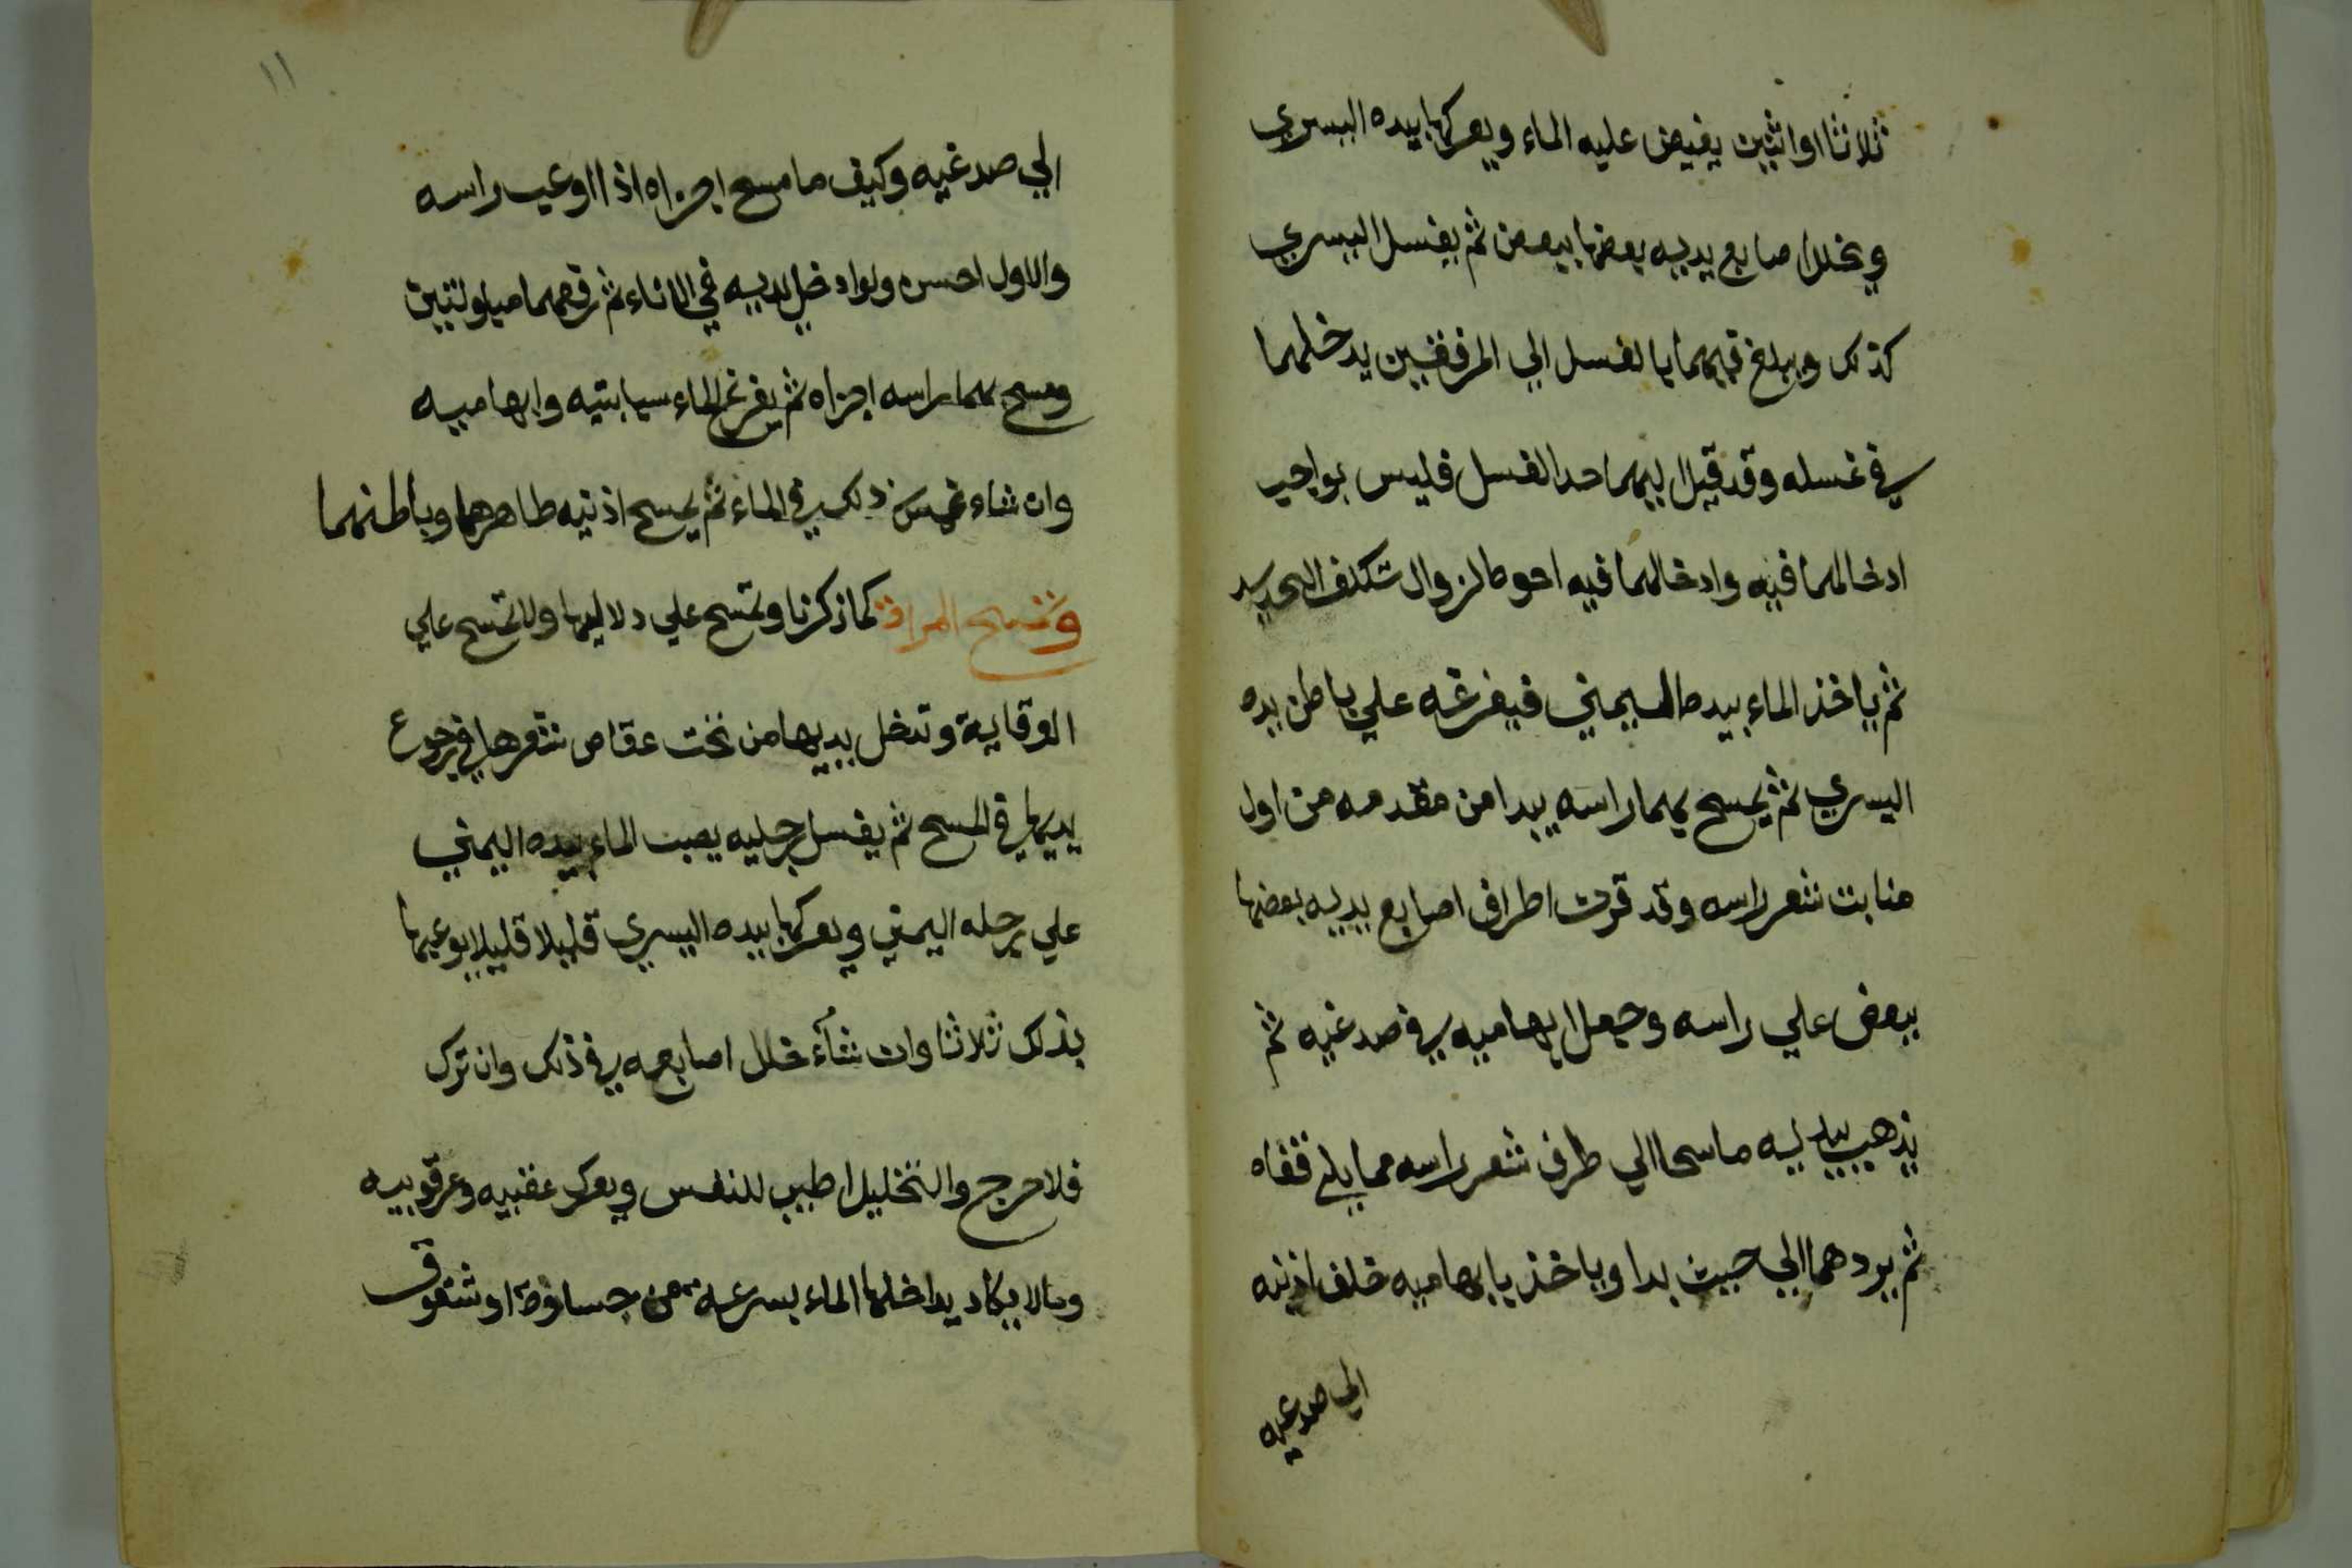 ثلاثا او اثنين يفيض عليه الماء ويعركها بيده اليسري
ويخلل اصابع يديه بعضها ببعض ثم يغسل اليسري
كذلك ويبلغ فيهما بالغسل الي المرفقين يدخلهما
في غسله وقد قيل اليهما حد الغسل فليس بواجب
ادخالهما فيه وادخالهما فيه احوط لزوال تكلف التحديد
ثم ياخذ الماء بيده اليمني فيفرغه علي باطن يده
اليسري ثم يمسح بهما راسه يبدا من مقدمه من اول
منابت شعر راسه وقد قرن اطراف اصابع يديه بعضها
ببعض علي راسه وجعل ابهاميه في صدغيه ثم
يذهب بيديه ماسحا الي طرف شعر راسه مما يلي قفاه
ثم يردهما الي حيث بدا وياخذ بابهاميه خلف اذنيه
الي صدغيه
١١
الي صدغيه وكيف ما مسح اجزاه اذا اوعب راسه
والاول احسن ولو ادخل يديه في الاناء ثم رفعهما مبلولتين
ومسح بهما راسه اجزاه ثم يفرغ الماء سبابتيه وابهاميه
وان شاء غمس ذلك في الماء ثم يمسح اذنيه ظاهرهما وباطنهما
وتمسح المراة كما ذكرنا وتمسح علي دلاليها ولا تمسح علي
الوقاية وتدخل يديها من تحت عقاص شعرها في رجوع
يديها في المسح ثم يغسل رجليه يصب الماء بيده اليمني
علي رجله اليمني ويعركها بيده اليسري قليلا قليلا يوعبها
بذلك ثلاثا وان شاء خلل اصابعه في ذلك وان ترك
فلا حرج والتخليل اطيب للنفس ويعرك عقبيه وعرقوبيه
وما لا يكاد يداخلها الماء بسرعة من جساوة او شقوق